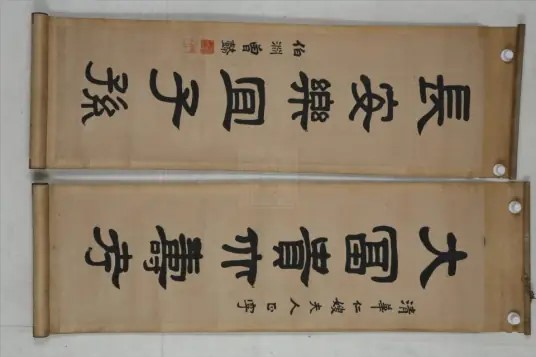 清華仁嫂夫人正字
大冨貴亦壽考
長安樂冝子孫
伯淵曾懿